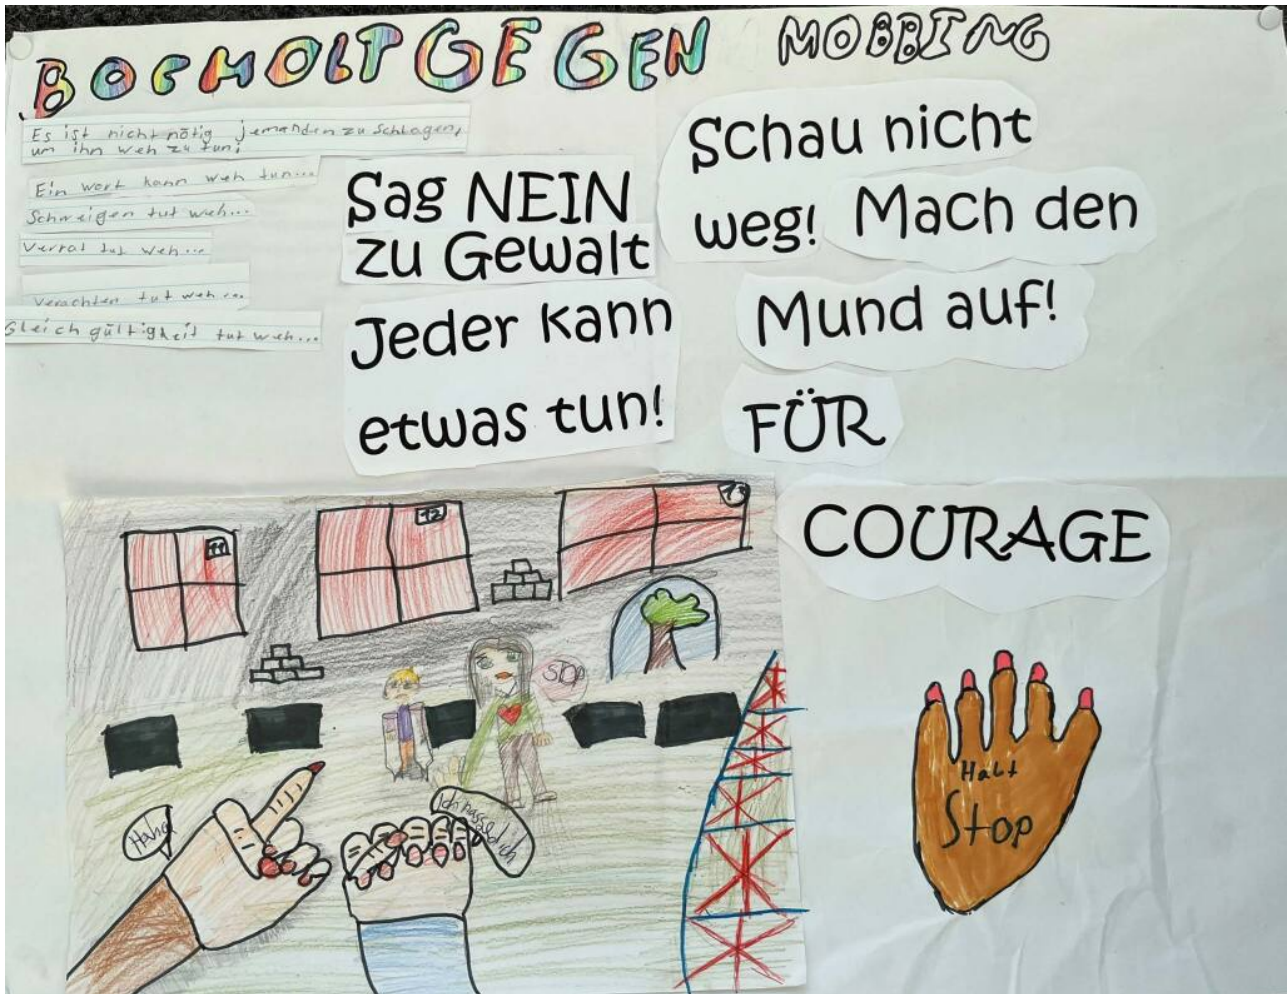 BOCHOLT GEGEN MOBBING
Es ist nicht nötig jemanden zu schlagen,
um ihn weh zu tun;
Ein wort kann weh tun...
Schweigen tut weh...
Verrat tut weh...
Verachten tut weh...
Gleich gültigkeit tut weh...
Sag NEIN
zu Gewalt
Jeder kann
etwas tun!
Schau nicht
weg! Mach den
Mund auf!
FÜR
COURAGE
11
12
13
STOP
Haha
Ich hasse dich
Halt
Stop